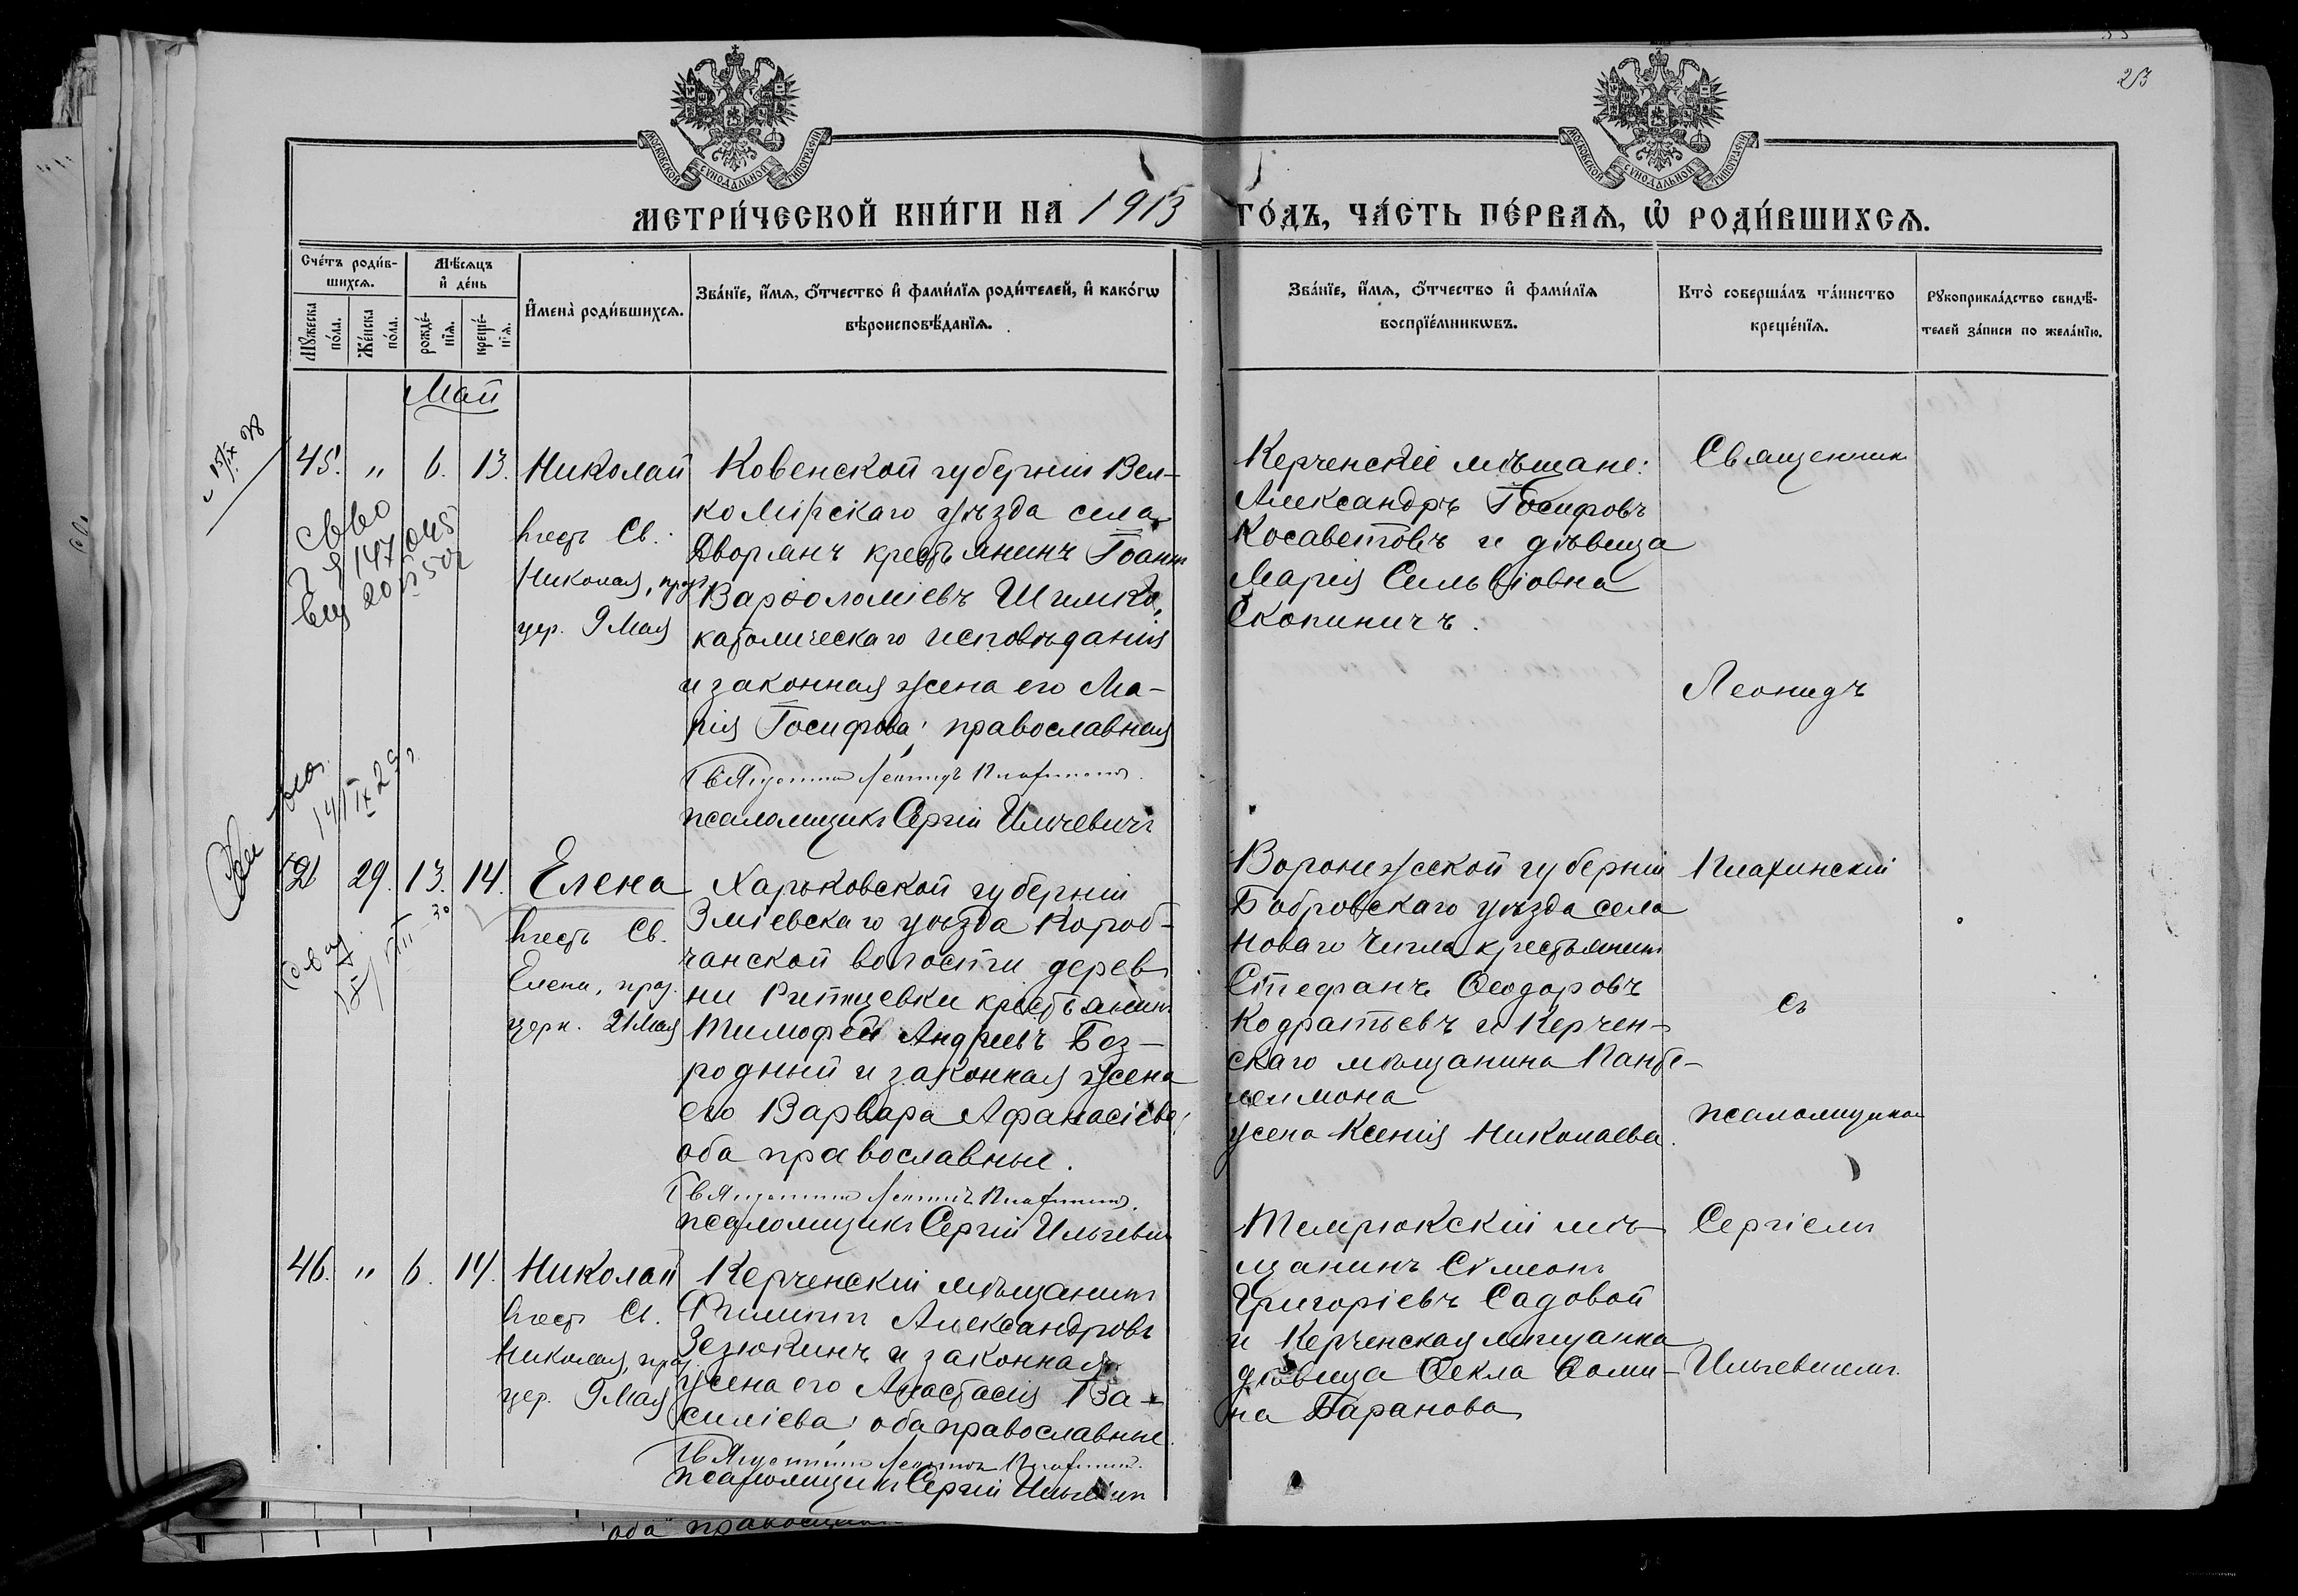 253
МОСКОВСКОЙ СѴНОДАЛЬНОЙ ТИПОГРАФІИ
МОСКОВСКОЙ СѴНОДАЛЬНОЙ ТИПОГРАФІИ
МЕТРИ́ЧЕСКОЙ КНИ́ГИ НА 1913 ГО́ДЪ, ЧА́СТЬ ПЕ́РВАѦ, Ѡ҆ РОДИ́ВШИХСѦ.
Сче́тъ роди́в-
шихсѧ.
Мꙋ́жеска по́ла.
Же́нска по́ла.
Мѣ́сѧцъ
и҆ де́нь
рожде́-
нїѧ.
креще́-
нїѧ.
И҆мена̀ роди́вшихсѧ.
Зва́нїе, и҆́мѧ, ѻ҆́тчество и҆ фами́лїѧ роди́телей, и҆ како́гѡ
вѣроисповѣ́данїѧ.
Зва́нїе, и҆́мѧ, ѻ҆́тчество и҆ фами́лїѧ
воспрїе́мникѡвъ.
Кто̀ соверша́лъ та́инство
креще́нїѧ.
Рꙋкоприкла́дство свидѣ́-
телей за́писи по жела́нїю.
Май
45. „ 6. 13. Николай
честь Св.
Николая, праз.
цер. 9 Мая
Ковенской губерніи Вел-
комірскаго уѣзда села
Дворянъ крестьянинъ Іоаннъ
Варѳоломіевъ Шимко,
католическаго исповѣданія
и законная жена его Ма-
рія Іосифова, православная
Священникъ Леонидъ
псаломщикъ Сергій Ильчевичъ
Керченскіе мѣщане:
Александръ Іосифовъ
Косаветовъ и дѣвица
Марія Сильвіовна
Скопиничъ.
Священникъ
Леонидъ
29. 13. 14. Елена
честь Св.
Елены, праз.
церк. 21 Мая
Харьковской губерніи
Зміевскаго уѣзда Короб-
чанской волости дерев-
ни крестьянинъ
Тимофей Андреевъ Без-
родный и законная жена
его Варвара Афанасіева,
оба православные.
Священникъ Леонидъ
псаломщикъ Сергій Ильчевичъ
Воронежской губерніи
Бобровскаго уѣзда села
Новаго Чигла крестьянинъ
Стефанъ Ѳеодоровъ
Кодратьевъ и Керчен-
скаго мѣщанина Панте-
леимона
жена Ксенія Николаева.
съ
псаломщикомъ
46. „ 6. 14. Николай
честь Св.
Николая, праз.
цер. 9 Мая
Керченскій мѣщанинъ
Филиппъ Александровъ
Зезюкинъ и законная
жена его Анастасія Ва-
силіева, оба православные.
Священникъ Леонидъ
псаломщикъ Сергій Ильчевичъ
Темрюкскій мѣ-
щанинъ Симеонъ
Григоріевъ Садовой
и Керченская мѣщанка
дѣвица Ѳекла Ѳоми-
на Баранова
Сергіемъ
Ильчевичемъ.
оба